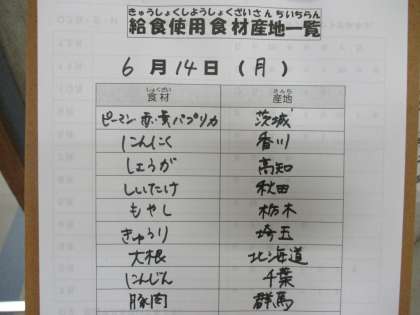 きゅうしょくしようしょくざいさんちいちらん
給食使用食材産地一覧
6月14日（月）
しょくざい さんち
食材 産地
ピーマン 赤・黄パプリカ 茨城
にんにく 香川
しょうが 高知
しいたけ 秋田
もやし 栃木
きゅうり 埼玉
大根 北海道
にんじん 千葉
豚肉 群馬